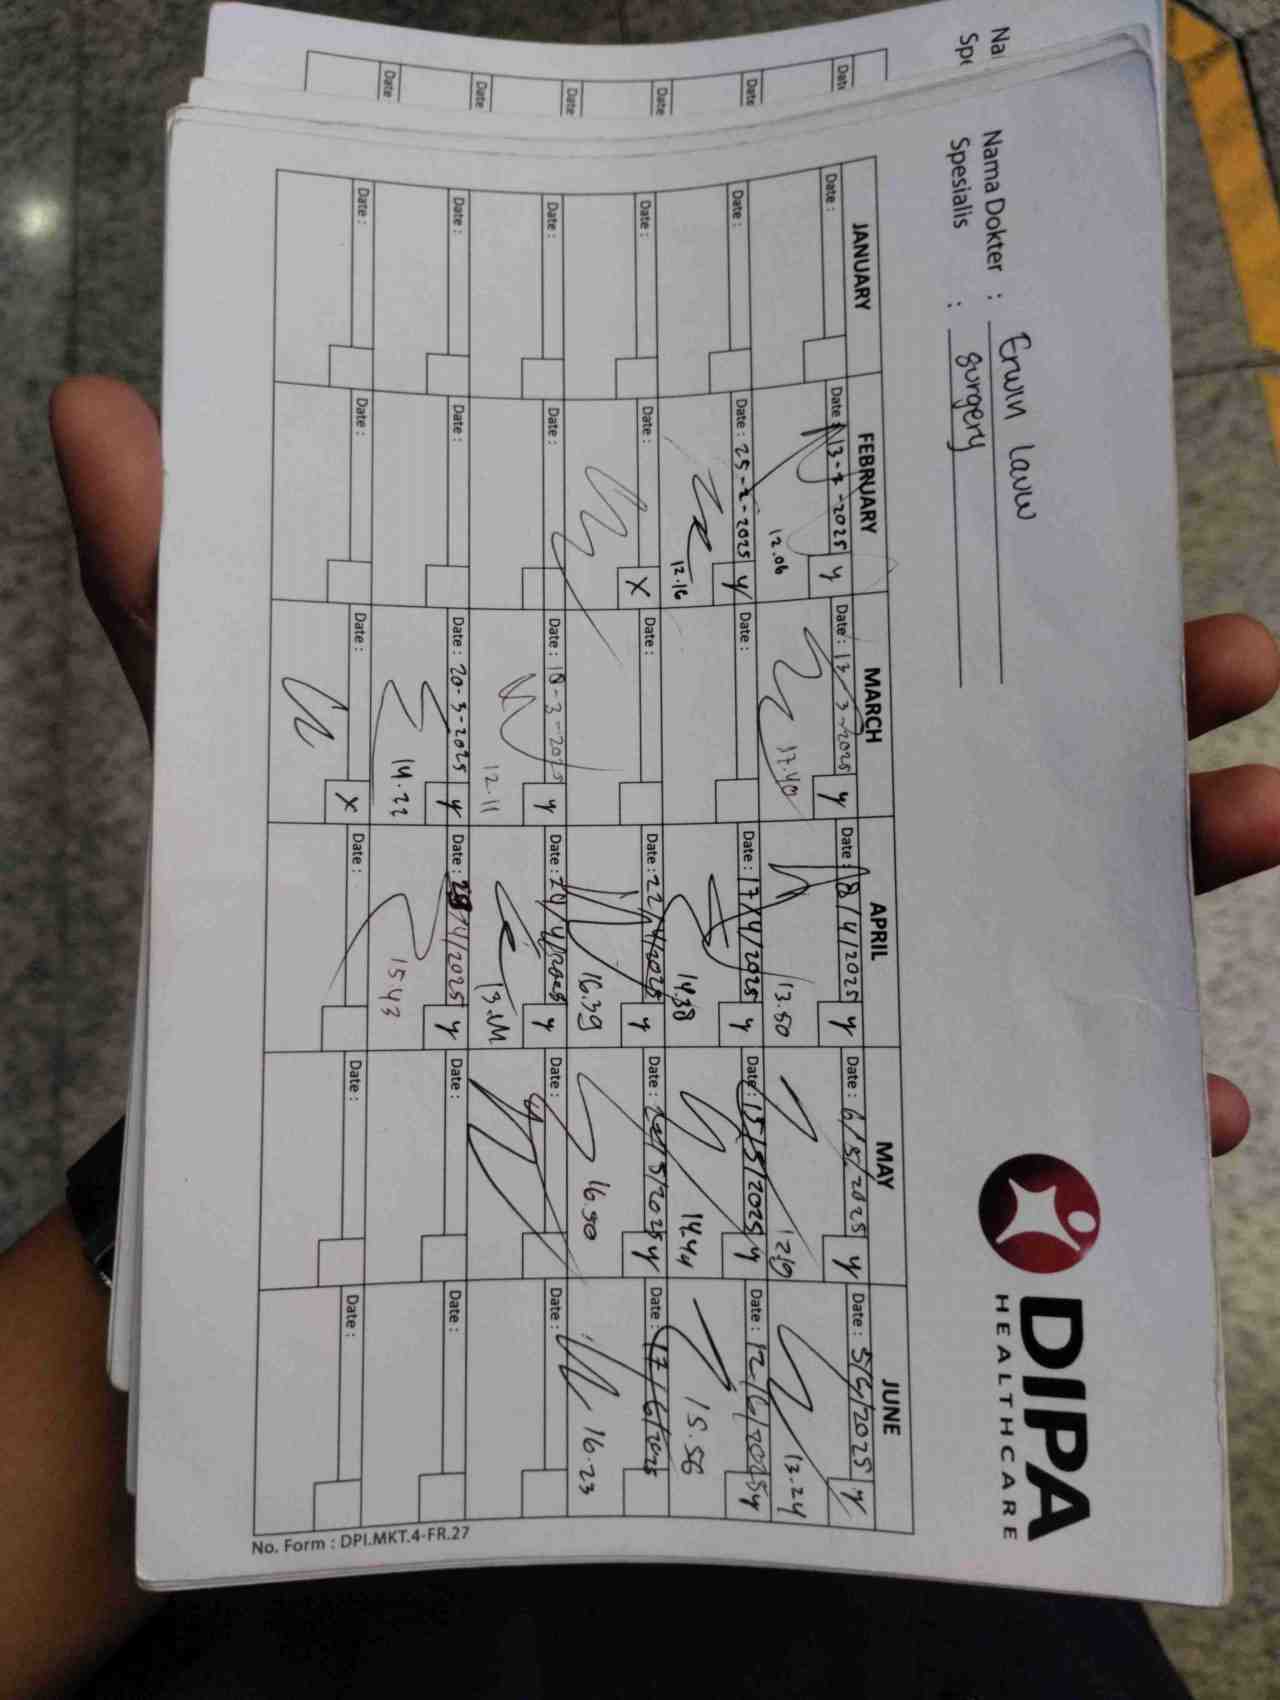 DIPA
HEALTHCARE
Nama Dokter : Erwin
Spesialis : surgery
JANUARY FEBRUARY MARCH APRIL MAY JUNE
Date : Date : 13-2-2025 y Date : 13/3-2025 y Date : 8/4/2025 y Date : 6/5/2025 y Date : 5/6/2025 y
12.06 17.40 13.50 13.24
Date : Date : 25-2-2025 y Date : Date : 17/4/2025 y Date : 15/5/2025 y Date : 12/6/2025 y
12.16 14.38 14.44 15.56
Date : Date : X Date : Date : 22/4/2025 y Date : 22/5/2025 y Date : 17/6/2025
16.39 16.50 16.23
Date : Date : Date : 18-3-2025 y Date : y Date : Date :
12.11
Date : Date : Date : 20-3-2025 y Date : /4/2025 y Date : Date :
14.22 15.43
Date : Date : Date : X Date : Date : Date :
No. Form : DPI.MKT.4-FR.27
Na
Spe
Date Date Date Date Date Date